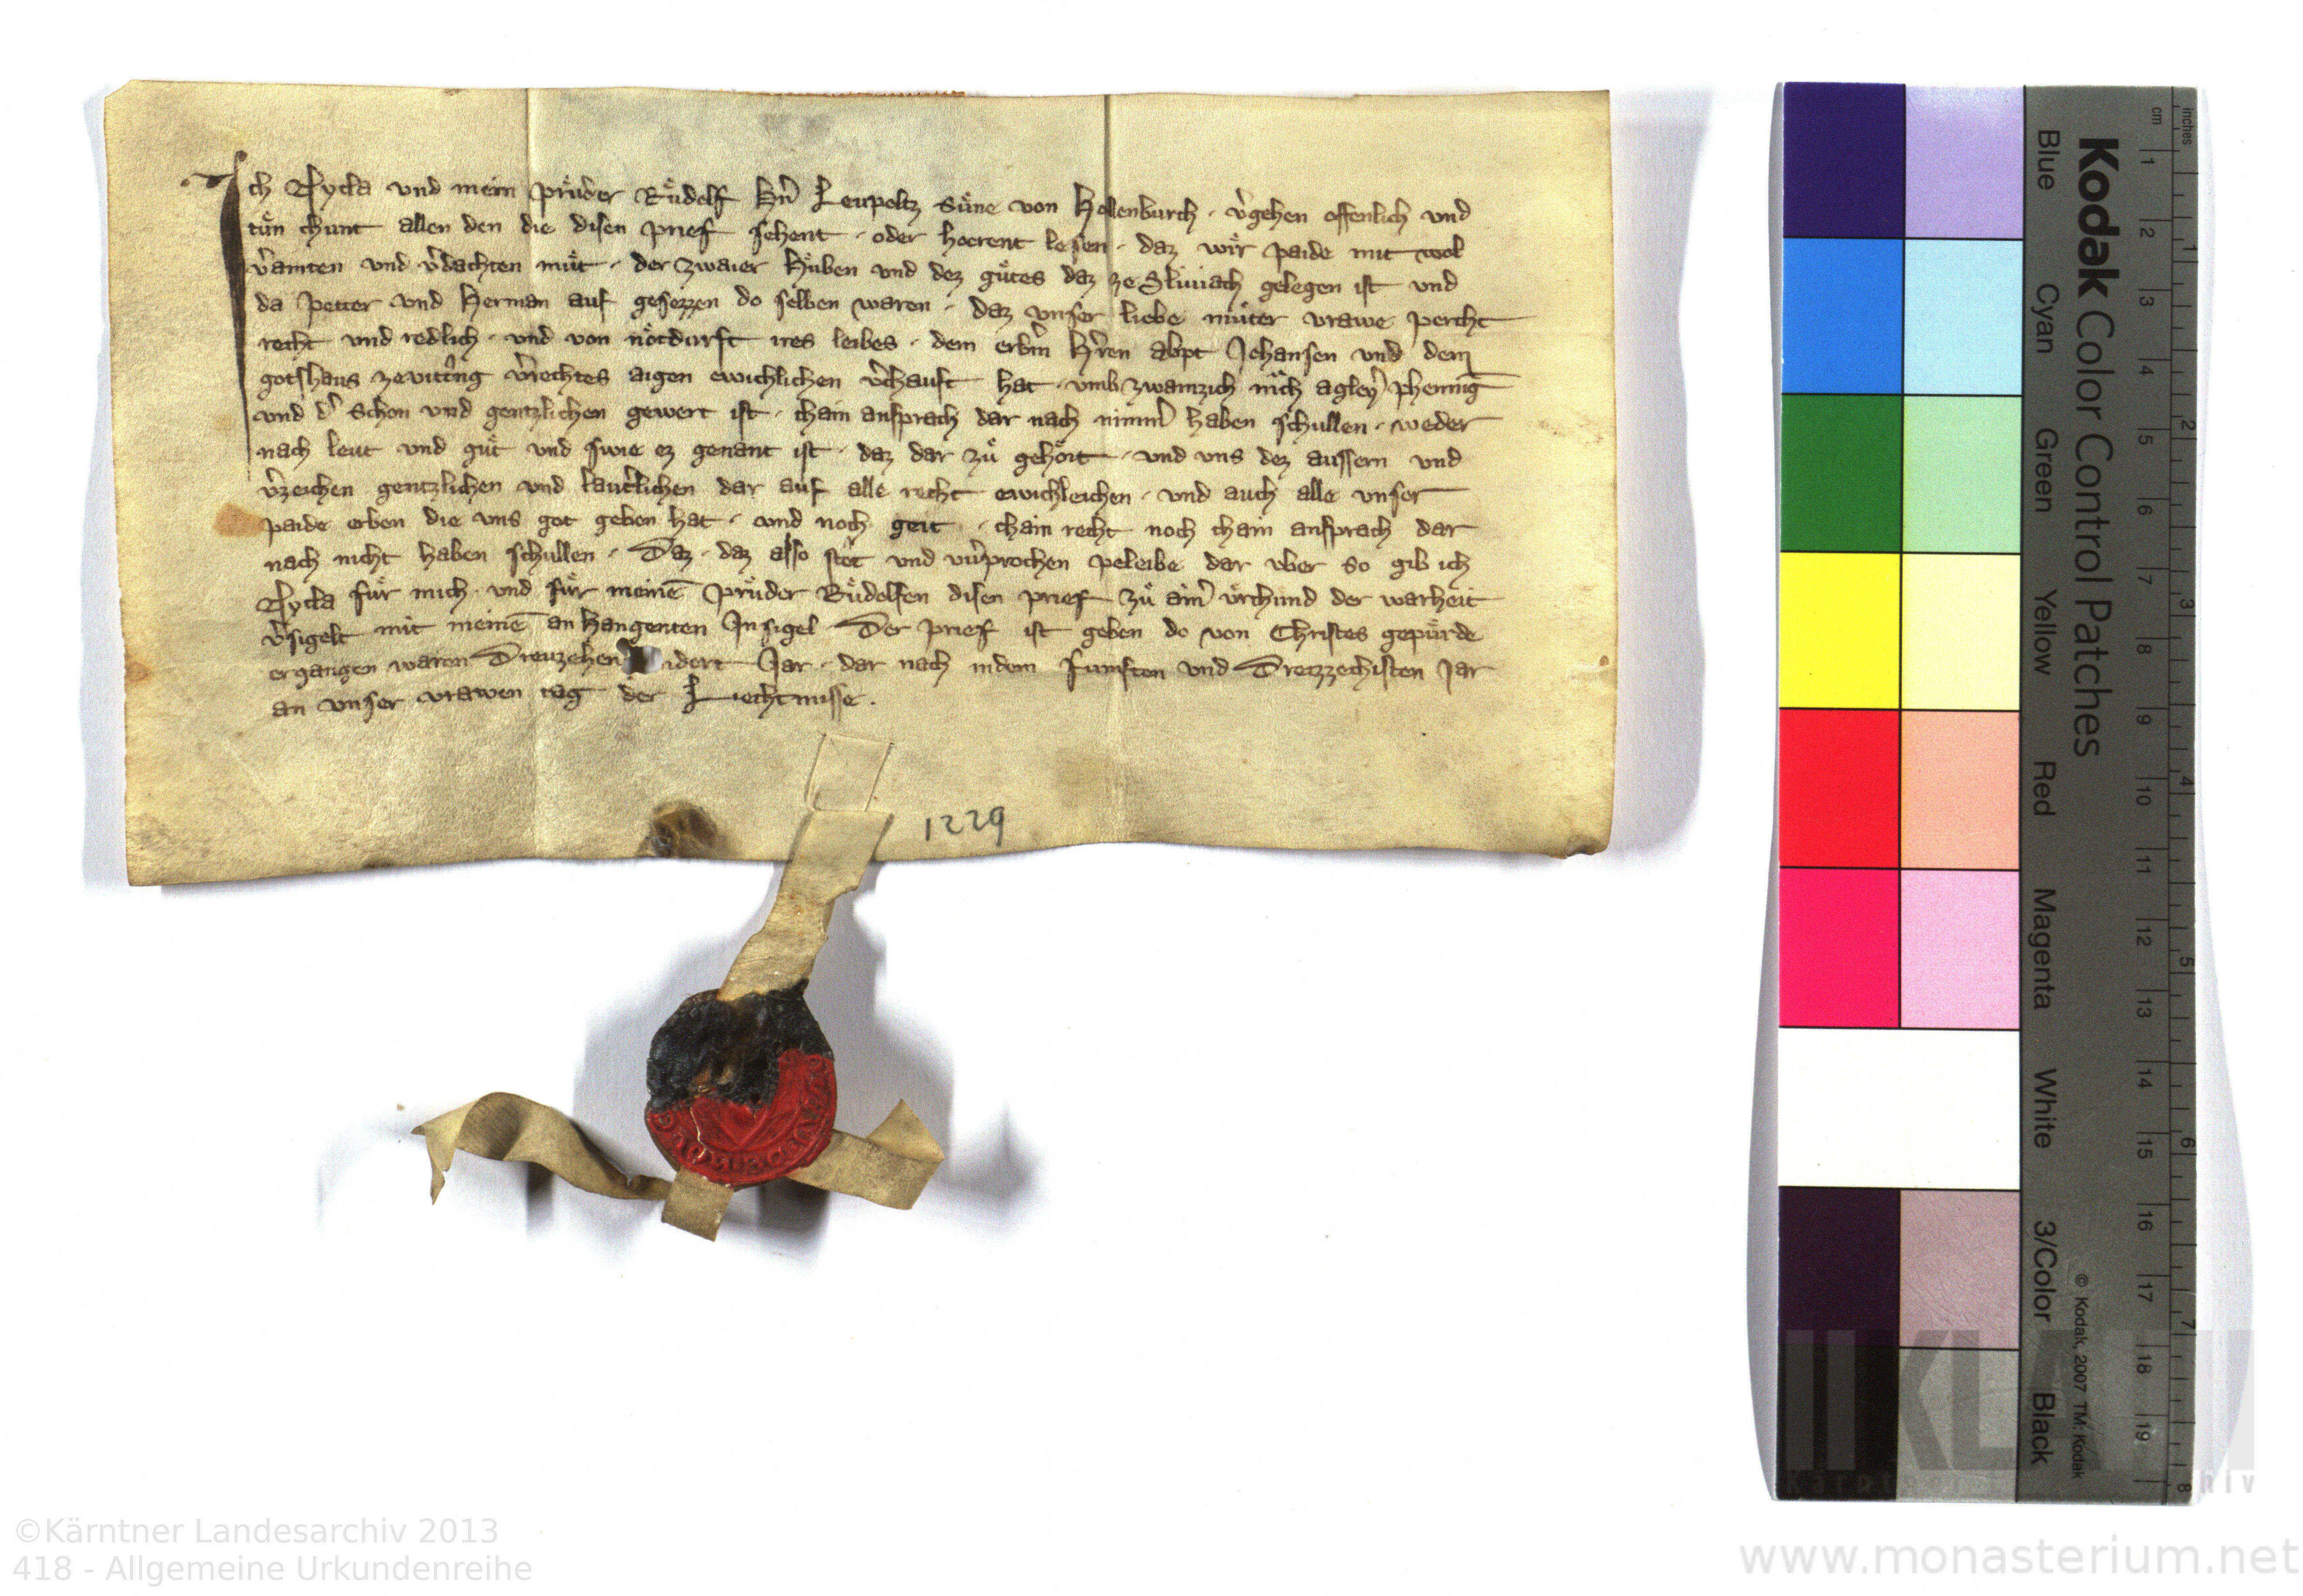 Ich Nycla und mein průder Růdolf hˀn Leupoltz Sůne von Hollenburch · vˀgehen offenlich und
tůn chunt allen den die disen prief sehent · oder hoerent lesen · daz wir paide mit wol
vˀamten und vˀdachten můt · der zwaier Hůben und dez gůtes daz ze Sliuiach gelegen ist und
da petter und Herman auf gesezzen do selben waren · daz unser liebe můter vrawe percht
recht und redlich · und von nôtdurft ires leibes · dem erbˀn hˀren abpt Johansen und dem
gotshaus ze vittˀng vˀrechtes aigen ewichlichen vˀchauft hat · umb zwainzich mˀch agleyˀ phennig̅
und dˀ Schon und gentzlichen gewert ist · chain ansprach dar nach nimmˀ haben schullen · weder
nach leut und gůt und swie ez genant ist · daz dar zů gehôrt · und uns dez aussern und
vˀzeichen gentzlichen und lautˀlichen dar auf alle recht ewichleichen · und auch alle unser
paide erben die uns got geben hat · und noch geit · chain recht noch chain ansprach dar
nach nicht haben schullen · Daz · daz also stêt und unˀprochen peleibe dar uber so gib ich
Nycla fůr mich · und fůr meine̅ průder Růdolfen disen prief zů aimˀ ůrchund der warheit
vˀsigelt mit meine̅ an hangenten Insigel · Der prief ist geben do von Christes gepůrde
ergangen waren Dreuzehen ndert Jar · dar nach in dem fumften und Dreizzechisten Jar
an unser vrawen tag der Liechtmisse ·
1229
Kodak Color Control Patches
Blue Cyan Green Yellow Red Magenta White 3/Color Black
© Kodak, 2007 TM: Kodak
cm 1 2 3 4 5 6 7 8 9 10 11 12 13 14 15 16 17 18 19
inches 1 2 3 4 5 6 7 8
KLA
©Kärntner Landesarchiv 2013
418 - Allgemeine Urkundenreihe
www.monasterium.net